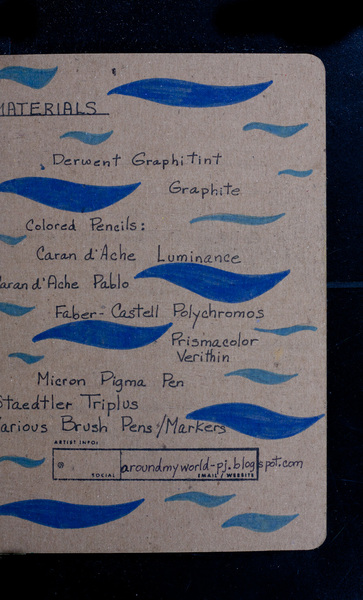 MATERIALS
Derwent Graphitint
Graphite
Colored Pencils:
Caran d'Ache Luminance
Caran d'Ache Pablo
Faber-Castell Polychromos
Prismacolor
Verithin
Micron Pigma Pen
Staedtler Triplus
Various Brush Pens/Markers
ARTIST INFO:
@
aroundmyworld-pj.blogspot.com
SOCIAL
EMAIL / WEBSITE